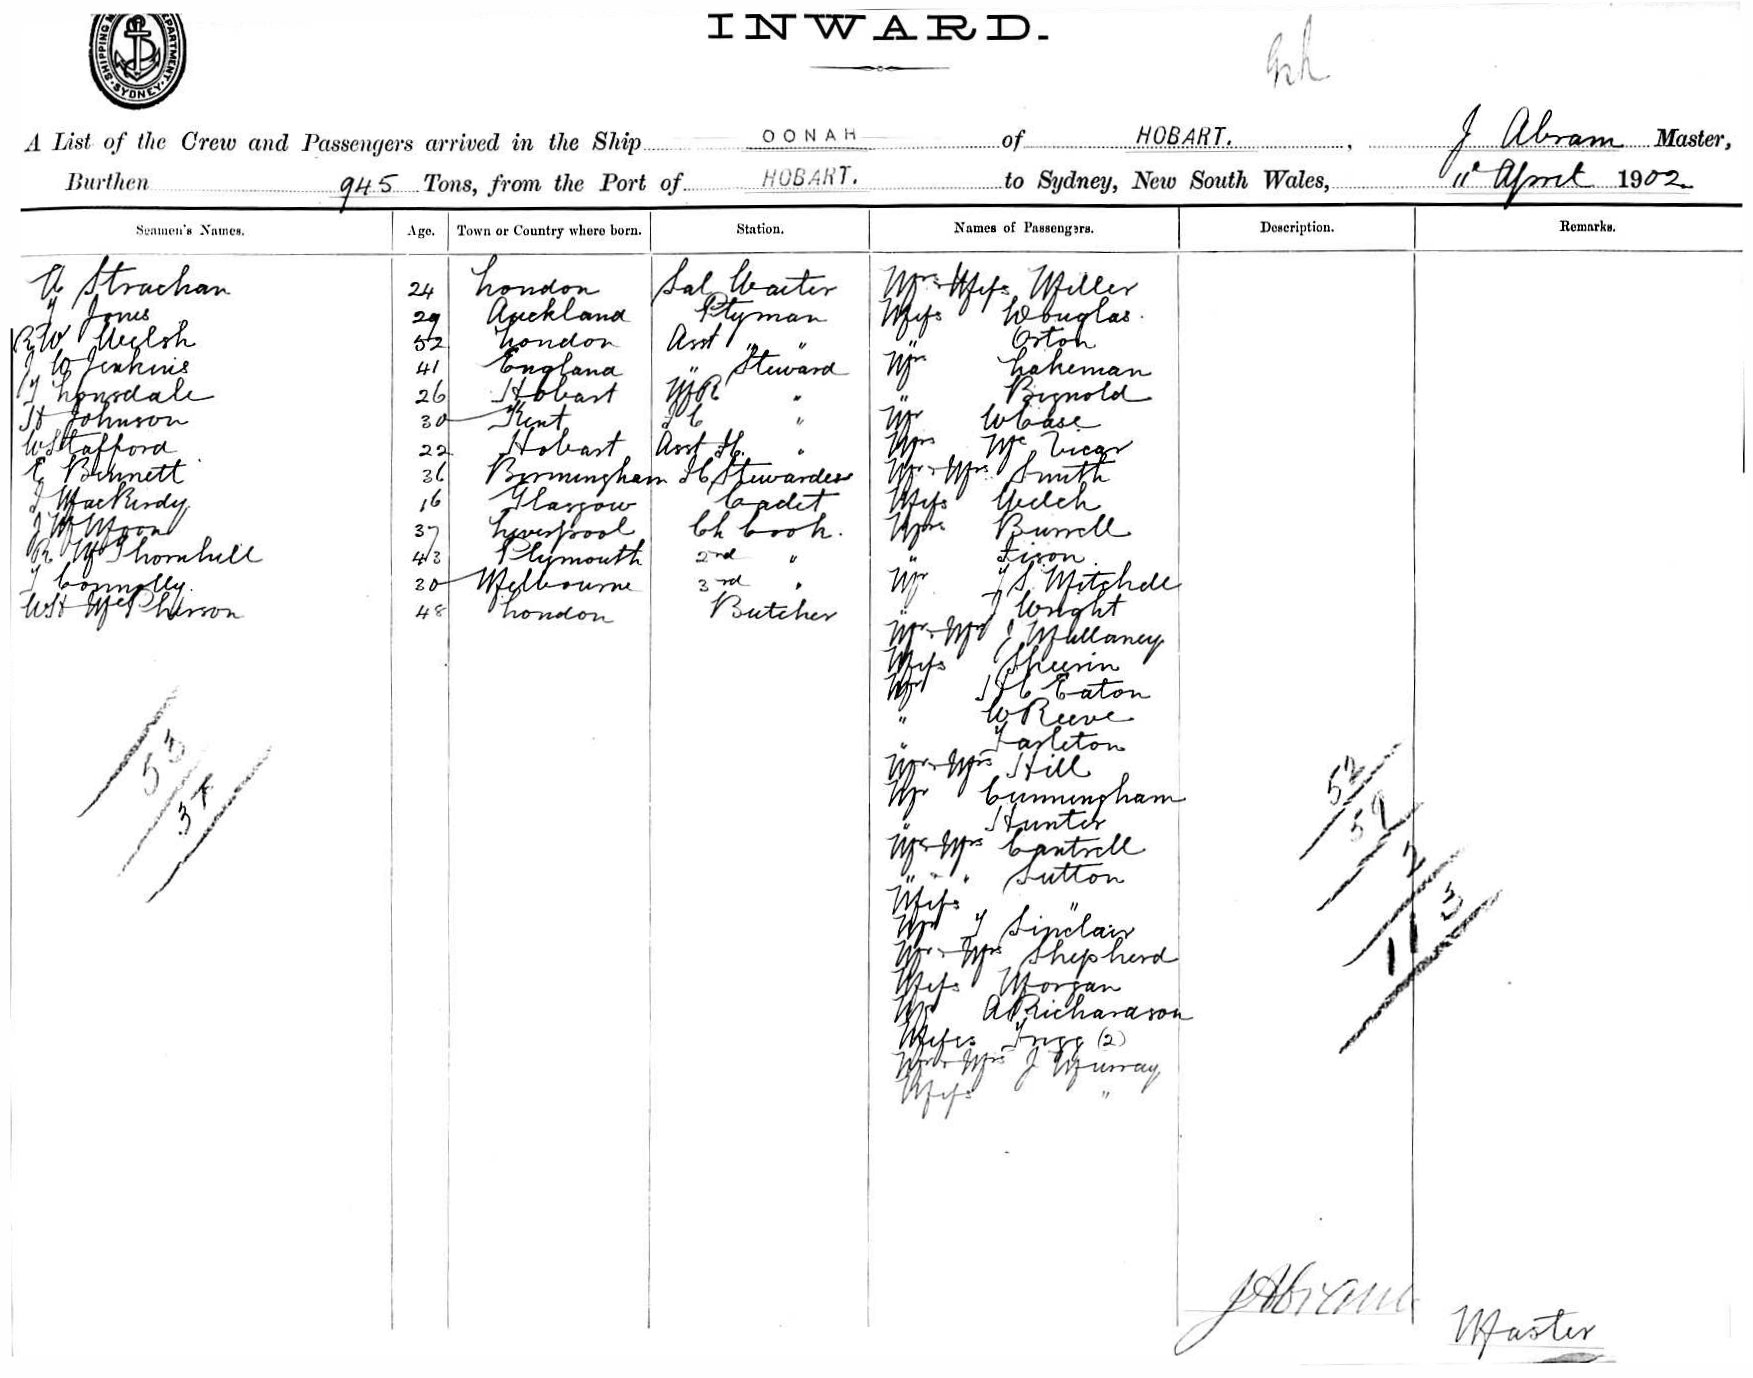 SHIPPING DEPARTMENT SYDNEY
INWARD.
A List of the Crew and Passengers arrived in the Ship OONAH of HOBART. , J Abram Master,
Burthen 945 Tons, from the Port of HOBART. to Sydney, New South Wales, 11th April 1902
Seamen's Names. Age. Town or Country where born. Station. Names of Passengers. Description. Remarks.
A Strachan 24 London Sal Waiter Mrs & Miss Miller
Jones 29 Auckland Ptyman Miss Douglas.
R W Welsh 52 London Asst " " " Orton
J W Jenkins 41 England " Steward Mr Lakeman
T Lonsdale 26 Hobart " " Bignold
H Johnson 30 Kent " Mr W Case
W Stafford 22 Hobart Asst " Mrs Mc Vicar
E Bennett 36 Birmingham Stewardess Mr & Mrs Smith
J MacKirdy 16 Glasgow Cadet Miss Welch
J W Moon 37 Liverpool Ch Cook. Mrs Burrell
R W Thornhill 43 Plymouth 2nd " " Tison
T Connolly 30 Melbourne 3rd " Mr J S Mitchell
WH McPherson 48 London Butcher " J Wright
Mr & Mrs J Mullaney
Miss Sheerin
Mr Eaton
" W Reeve
" Tarleton
Mr & Mrs Hill
Mr Cunningham
" Hunter
Mr & Mrs Cantrell
" " " Sutton
Miss "
Mr J Sinclair
Mr & Mrs Shepherd
Miss Morgan
Mr A Richardson
Misses Trigg (2)
Mr & Mrs J Murray
Miss "
53
34
52
59
2
113
J Abram
Master